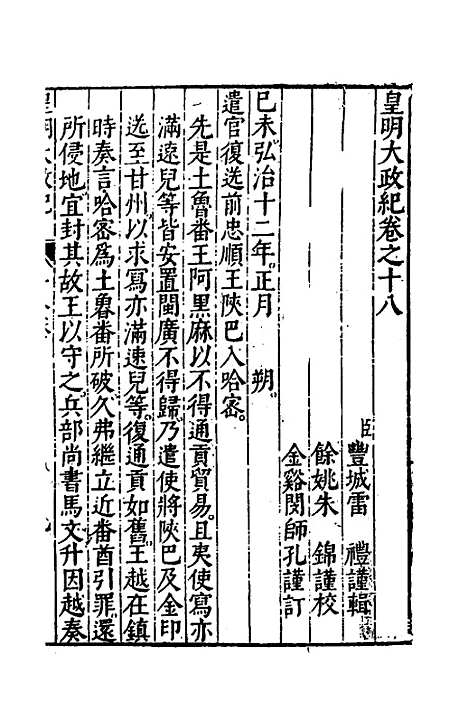 皇明大政紀卷之十八
臣豐城雷　禮謹輯
餘姚朱　錦謹校
金谿閔師孔謹訂
己未弘治十二年正月　朔
遣官復送前忠順王陝巴入哈密
先是土魯番王阿黑麻以不得通貢貿易且夷使寫亦
滿速兒等皆安置閩廣不得歸乃遣使將陝巴及金印
送至甘州以求寫亦滿速兒等復通貢如舊王越在鎮
時奏言哈密爲土魯番所破久弗繼立近番酋引罪還
所侵地宜封其故王以守之兵部尚書馬文升因越奏
皇明大政紀